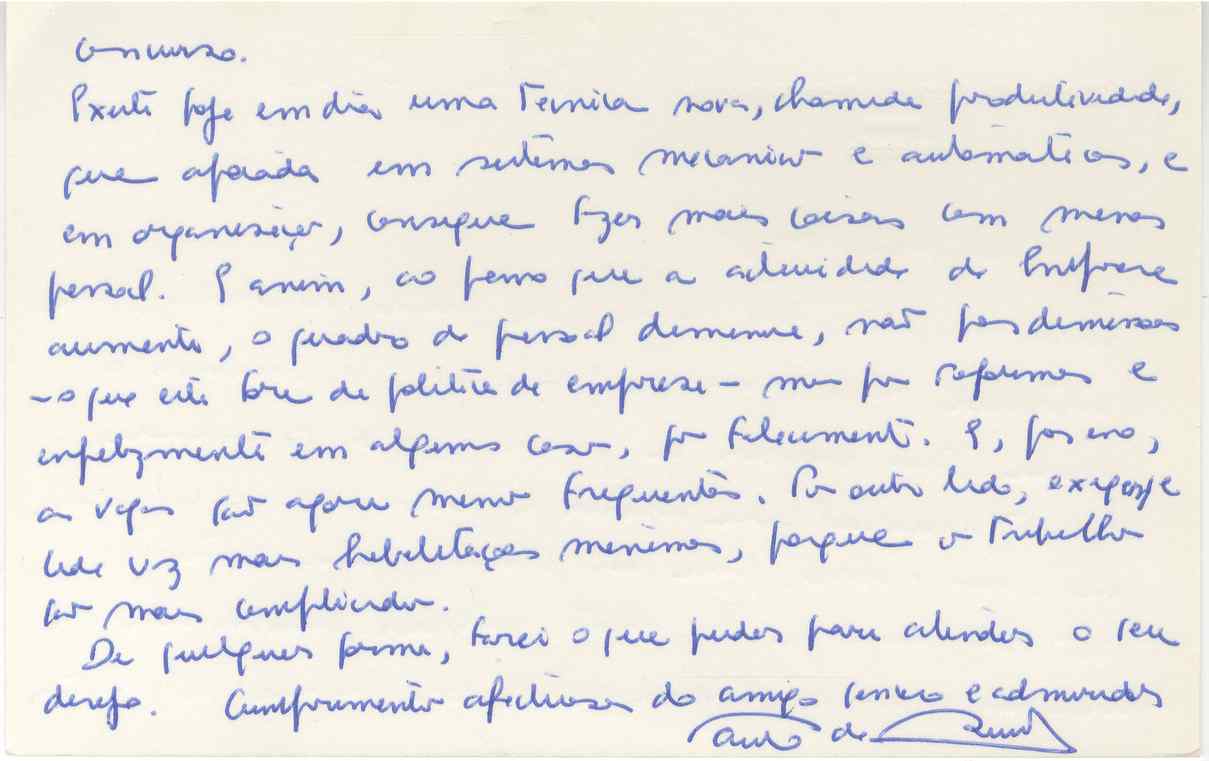 concurso.
Existe hoje em dia uma técnica nova, chamada produtividade,
que apoiada em sistemas mecanicos e automáticos, e
em organização, consegue fazer mais coisas com menos
pessoal. E assim, ao passo que a actividade da Empresa
aumenta, o quadro do pessoal diminue, não por demissões
– o que está fora da politica da empresa – mas por reformas e
infelizmente em alguns casos, por falecimento. E, por isso,
as vagas são agora menos frequentes. Por outro lado, exigem-se
cada vez mais habilitações mínimas, porque os trabalhos
são mais complicados.
De qualquer forma, farei o que puder para atender o seu
desejo. Cumprimentos afectuosos do amigo sincero e admirador
de